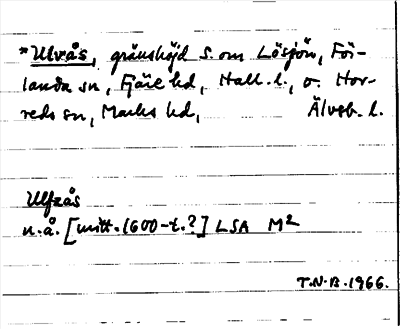 *Ulvås, gränshöjd S. om Lösjön, För-
landa sn, Fjäre hd, Hall. l., o. Hor-
reds sn, Marks hd, Älvsb. l.
Ulfzås
u.å. [mitt. 1600-t.?] LSA M2
T.N.B. 1966.